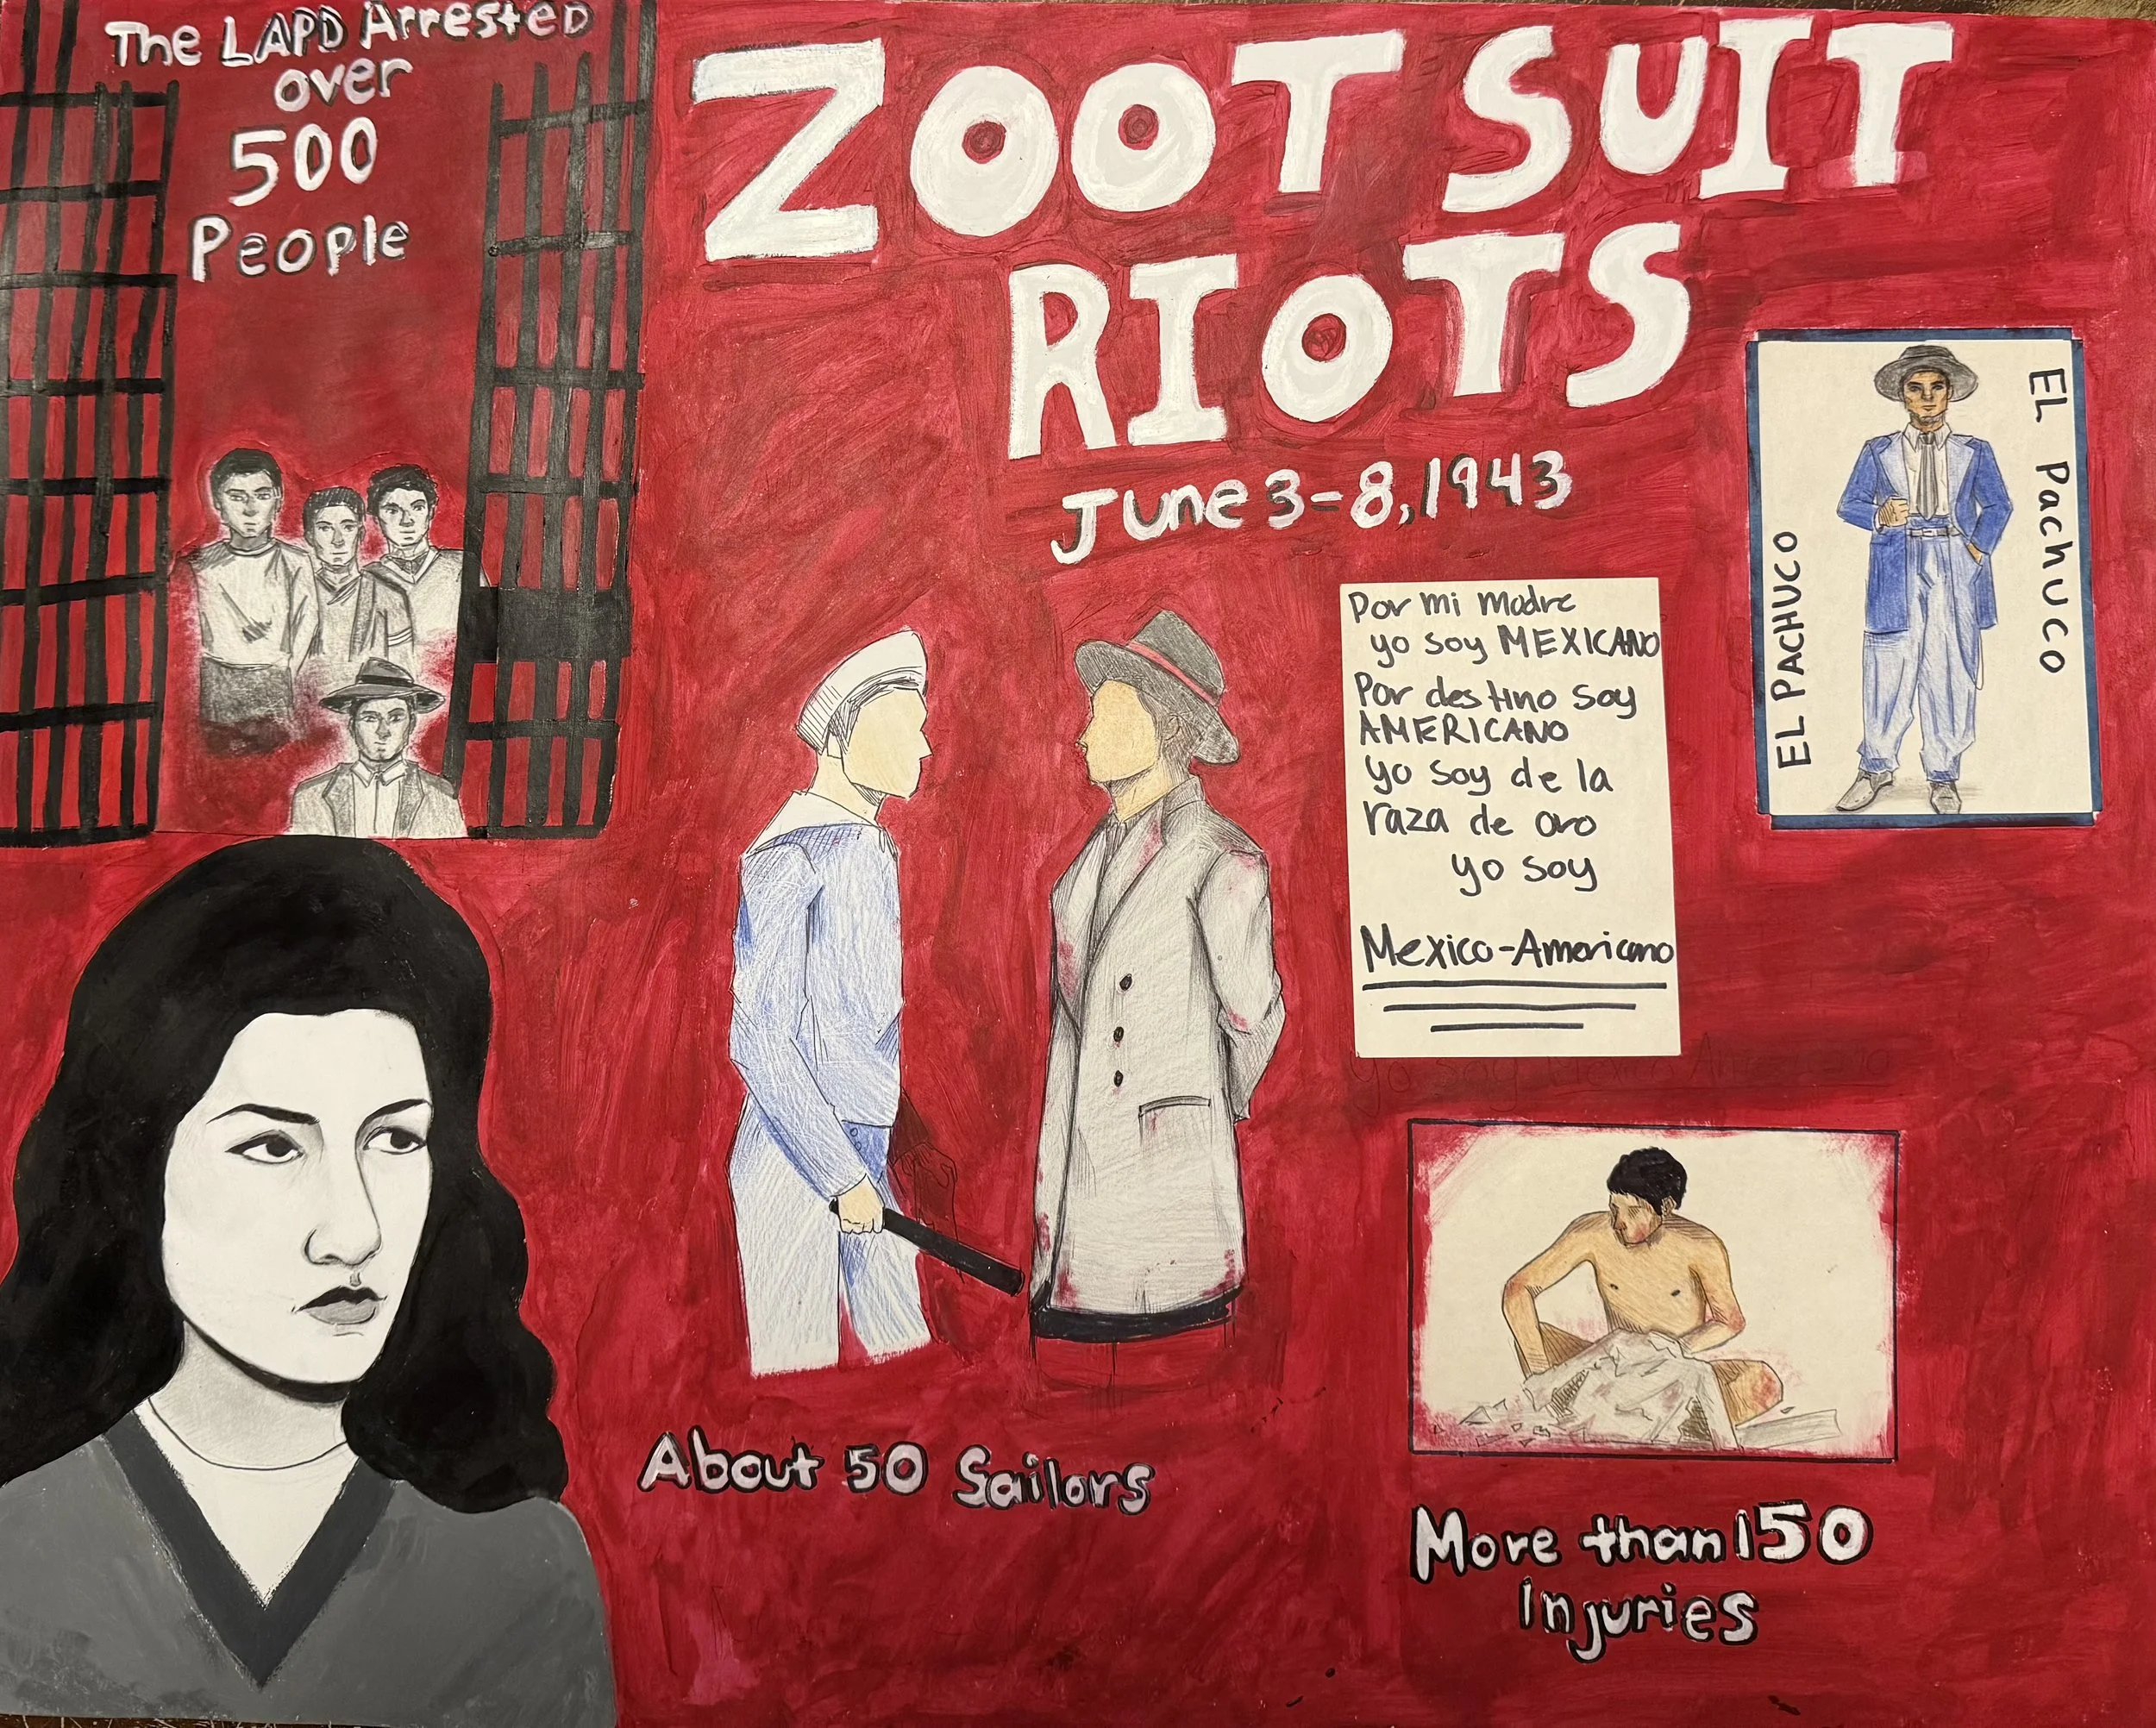 The LAPD Arrested
over
500
People
ZOOT SUIT
RIOTS
June 3-8, 1943
EL PACHUCO
EL Pachuco
Por mi madre
yo soy MEXICANO
Por destino soy
AMERICANO
yo soy de la
raza de oro
yo soy
Mexico-Americano
yo soy Mexico Americano
About 50 Sailors
More than 150
Injuries